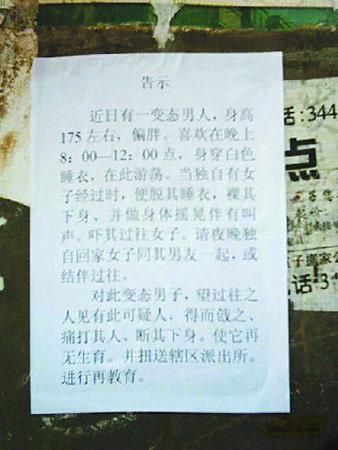 告示
近日有一变态男人，身高
175左右，偏胖。喜欢在晚上
8：00—12：00点，身穿白色
睡衣，在此游荡。当独自有女
子经过时，便脱其睡衣，裸其
下身、并做身体摇晃伴有叫
声。吓其过往女子。请夜晚独
自回家女子同其男友一起，或
结伴过往。
对此变态男子，望过往之
人见有此可疑人，得而戗之、
痛打其人、断其下身。使它再
无生育。并扭送辖区派出所。
进行再教育。
话:344
点
子搬家公
话:3